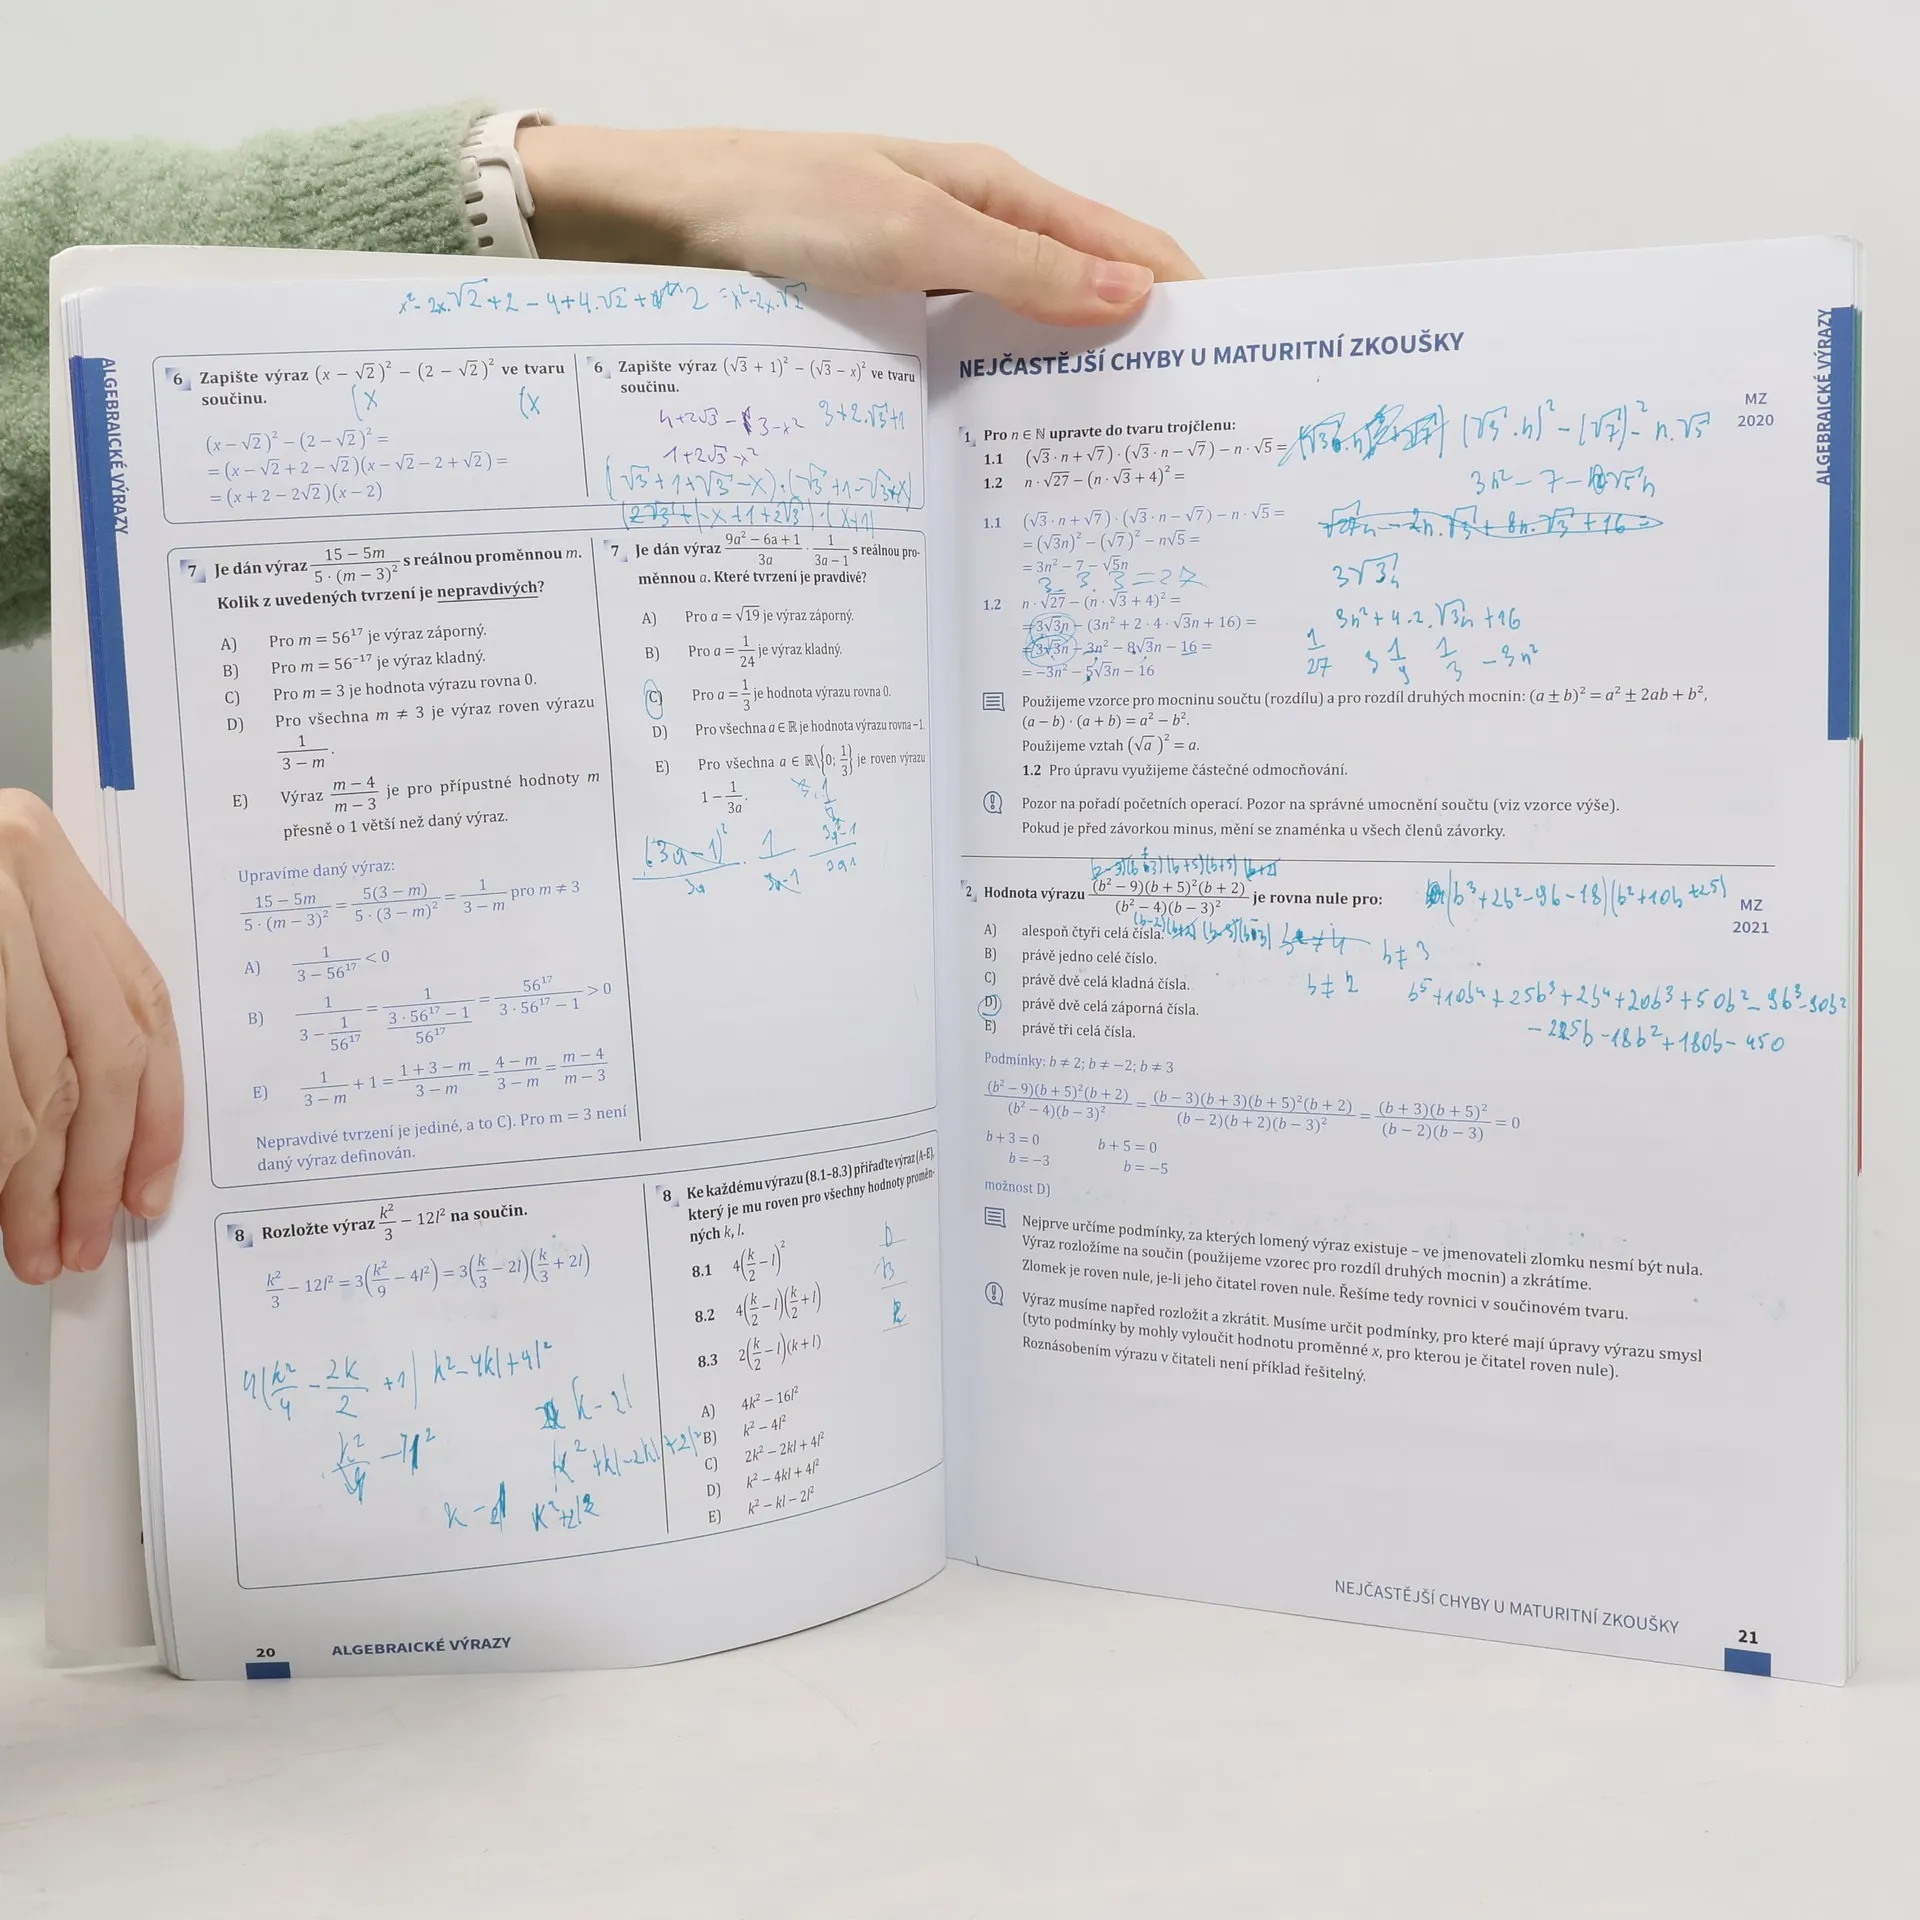 x² - 2x.√2 + 2 - 4 + 4.√2 + 2 = x² - 2x.√2
ALGEBRAICKÉ VÝRAZY
6 Zapište výraz (x − √2)² − (2 − √2)² ve tvaru
součinu.
(x (x
(x − √2)² − (2 − √2)² =
= (x − √2 + 2 − √2)(x − √2 − 2 + √2) =
= (x + 2 − 2√2)(x − 2)
6 Zapište výraz (√3 + 1)² − (√3 − x)² ve tvaru
součinu.
3+2.√3+1
1+2√3-x²
(√3+1+√3-x).(√3+1-√3+x)
7 Je dán výraz (15 − 5m)/(5 · (m − 3)²) s reálnou proměnnou m.
Kolik z uvedených tvrzení je nepravdivých?
A) Pro m = 56¹⁷ je výraz záporný.
B) Pro m = 56⁻¹⁷ je výraz kladný.
C) Pro m = 3 je hodnota výrazu rovna 0.
D) Pro všechna m ≠ 3 je výraz roven výrazu
1/(3 − m).
E) Výraz (m − 4)/(m − 3) je pro přípustné hodnoty m
přesně o 1 větší než daný výraz.
Upravíme daný výraz:
(15 − 5m)/(5 · (m − 3)²) = 5(3 − m)/(5 · (3 − m)²) = 1/(3 − m) pro m ≠ 3
A) 1/(3 − 56¹⁷) < 0
B) 1/(3 − 1/56¹⁷) = 1/((3 · 56¹⁷ − 1)/56¹⁷) = 56¹⁷/(3 · 56¹⁷ − 1) > 0
E) 1/(3 − m) + 1 = (1 + 3 − m)/(3 − m) = (4 − m)/(3 − m) = (m − 4)/(m − 3)
Nepravdivé tvrzení je jediné, a to C). Pro m = 3 není
daný výraz definován.
7 Je dán výraz (9a² − 6a + 1)/3a · 1/(3a − 1) s reálnou pro-
měnnou a. Které tvrzení je pravdivé?
A) Pro a = √19 je výraz záporný.
B) Pro a = 1/24 je výraz kladný.
C) Pro a = 1/3 je hodnota výrazu rovna 0.
D) Pro všechna a ∈ ℝ je hodnota výrazu rovna −1.
E) Pro všechna a ∈ ℝ\{0; 1/3} je roven výrazu
1 − 1/3a.
(3a-1)²/3a . 1/3a-1
8 Rozložte výraz k²/3 − 12l² na součin.
k²/3 − 12l² = 3(k²/9 − 4l²) = 3(k/3 − 2l)(k/3 + 2l)
4(k²/4 - 2k/2 + 1) k²-4kl+4l²
k-2l
k²+2l²
8 Ke každému výrazu (8.1–8.3) přiřaďte výraz (A–E),
který je mu roven pro všechny hodnoty proměn-
ných k, l.
8.1 4(k/2 − l)²
8.2 4(k/2 − l)(k/2 + l)
8.3 2(k/2 − l)(k + l)
A) 4k² − 16l²
B) k² − 4l²
C) 2k² − 2kl + 4l²
D) k² − 4kl + 4l²
E) k² − kl − 2l²
20 ALGEBRAICKÉ VÝRAZY
NEJČASTĚJŠÍ CHYBY U MATURITNÍ ZKOUŠKY
ALGEBRAICKÉ VÝRAZY
MZ
2020
1 Pro n ∈ ℕ upravte do tvaru trojčlenu:
1.1 (√3 · n + √7) · (√3 · n − √7) − n · √5 =
(√3.n)² - (√7)² - n.√5
1.2 n · √27 − (n · √3 + 4)² =
3n² - 7 - √5n
1.1 (√3 · n + √7) · (√3 · n − √7) − n · √5 =
= (√3n)² − (√7)² − n√5 =
= 3n² − 7 − √5n
3. 3. 3 = 27
3√3n
1.2 n · √27 − (n · √3 + 4)² =
= 3√3n − (3n² + 2 · 4 · √3n + 16) =
= 3√3n − 3n² − 8√3n − 16 =
= −3n² − 5√3n − 16
3n² + 4.2.√3n + 16
1/27 -3n²
Použijeme vzorce pro mocninu součtu (rozdílu) a pro rozdíl druhých mocnin: (a ± b)² = a² ± 2ab + b²,
(a − b) · (a + b) = a² − b².
Použijeme vztah (√a)² = a.
1.2 Pro úpravu využijeme částečné odmocňování.
Pozor na pořadí početních operací. Pozor na správné umocnění součtu (viz vzorce výše).
Pokud je před závorkou minus, mění se znaménka u všech členů závorky.
2 Hodnota výrazu (b² − 9)(b + 5)²(b + 2)/(b² − 4)(b − 3)² je rovna nule pro:
(b³+2b²-9b-18)(b²+10b+25)
MZ
2021
A) alespoň čtyři celá čísla.
B) právě jedno celé číslo.
C) právě dvě celá kladná čísla.
D) právě dvě celá záporná čísla.
E) právě tři celá čísla.
b≠3
b≠2
b⁵+10b⁴+25b³+2b⁴+20b³+50b²-9b³-90b²
-225b-18b²+180b-450
Podmínky: b ≠ 2; b ≠ −2; b ≠ 3
(b² − 9)(b + 5)²(b + 2)/(b² − 4)(b − 3)² = (b − 3)(b + 3)(b + 5)²(b + 2)/(b − 2)(b + 2)(b − 3)² = (b + 3)(b + 5)²/(b − 2)(b − 3) = 0
b + 3 = 0 b + 5 = 0
b = −3 b = −5
možnost D)
Nejprve určíme podmínky, za kterých lomený výraz existuje – ve jmenovateli zlomku nesmí být nula.
Výraz rozložíme na součin (použijeme vzorec pro rozdíl druhých mocnin) a zkrátíme.
Zlomek je roven nule, je-li jeho čitatel roven nule. Řešíme tedy rovnici v součinovém tvaru.
Výraz musíme napřed rozložit a zkrátit. Musíme určit podmínky, pro které mají úpravy výrazu smysl
(tyto podmínky by mohly vyloučit hodnotu proměnné x, pro kterou je čitatel roven nule).
Roznásobením výrazu v čitateli není příklad řešitelný.
NEJČASTĚJŠÍ CHYBY U MATURITNÍ ZKOUŠKY
21